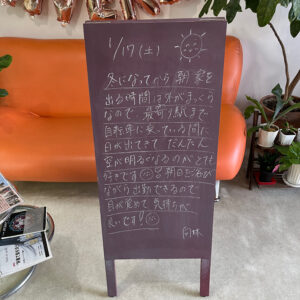 1/17(土)
冬になってから朝家を
出る時間は外がまっくら
なので、最寄り駅まで
自転車に乗っている間に
日が出てきてだんだん
空が明るくなるのがとても
好きです 毎朝日を浴び
ながら出勤できるので
目が覚めて気持ちが
良いです!!